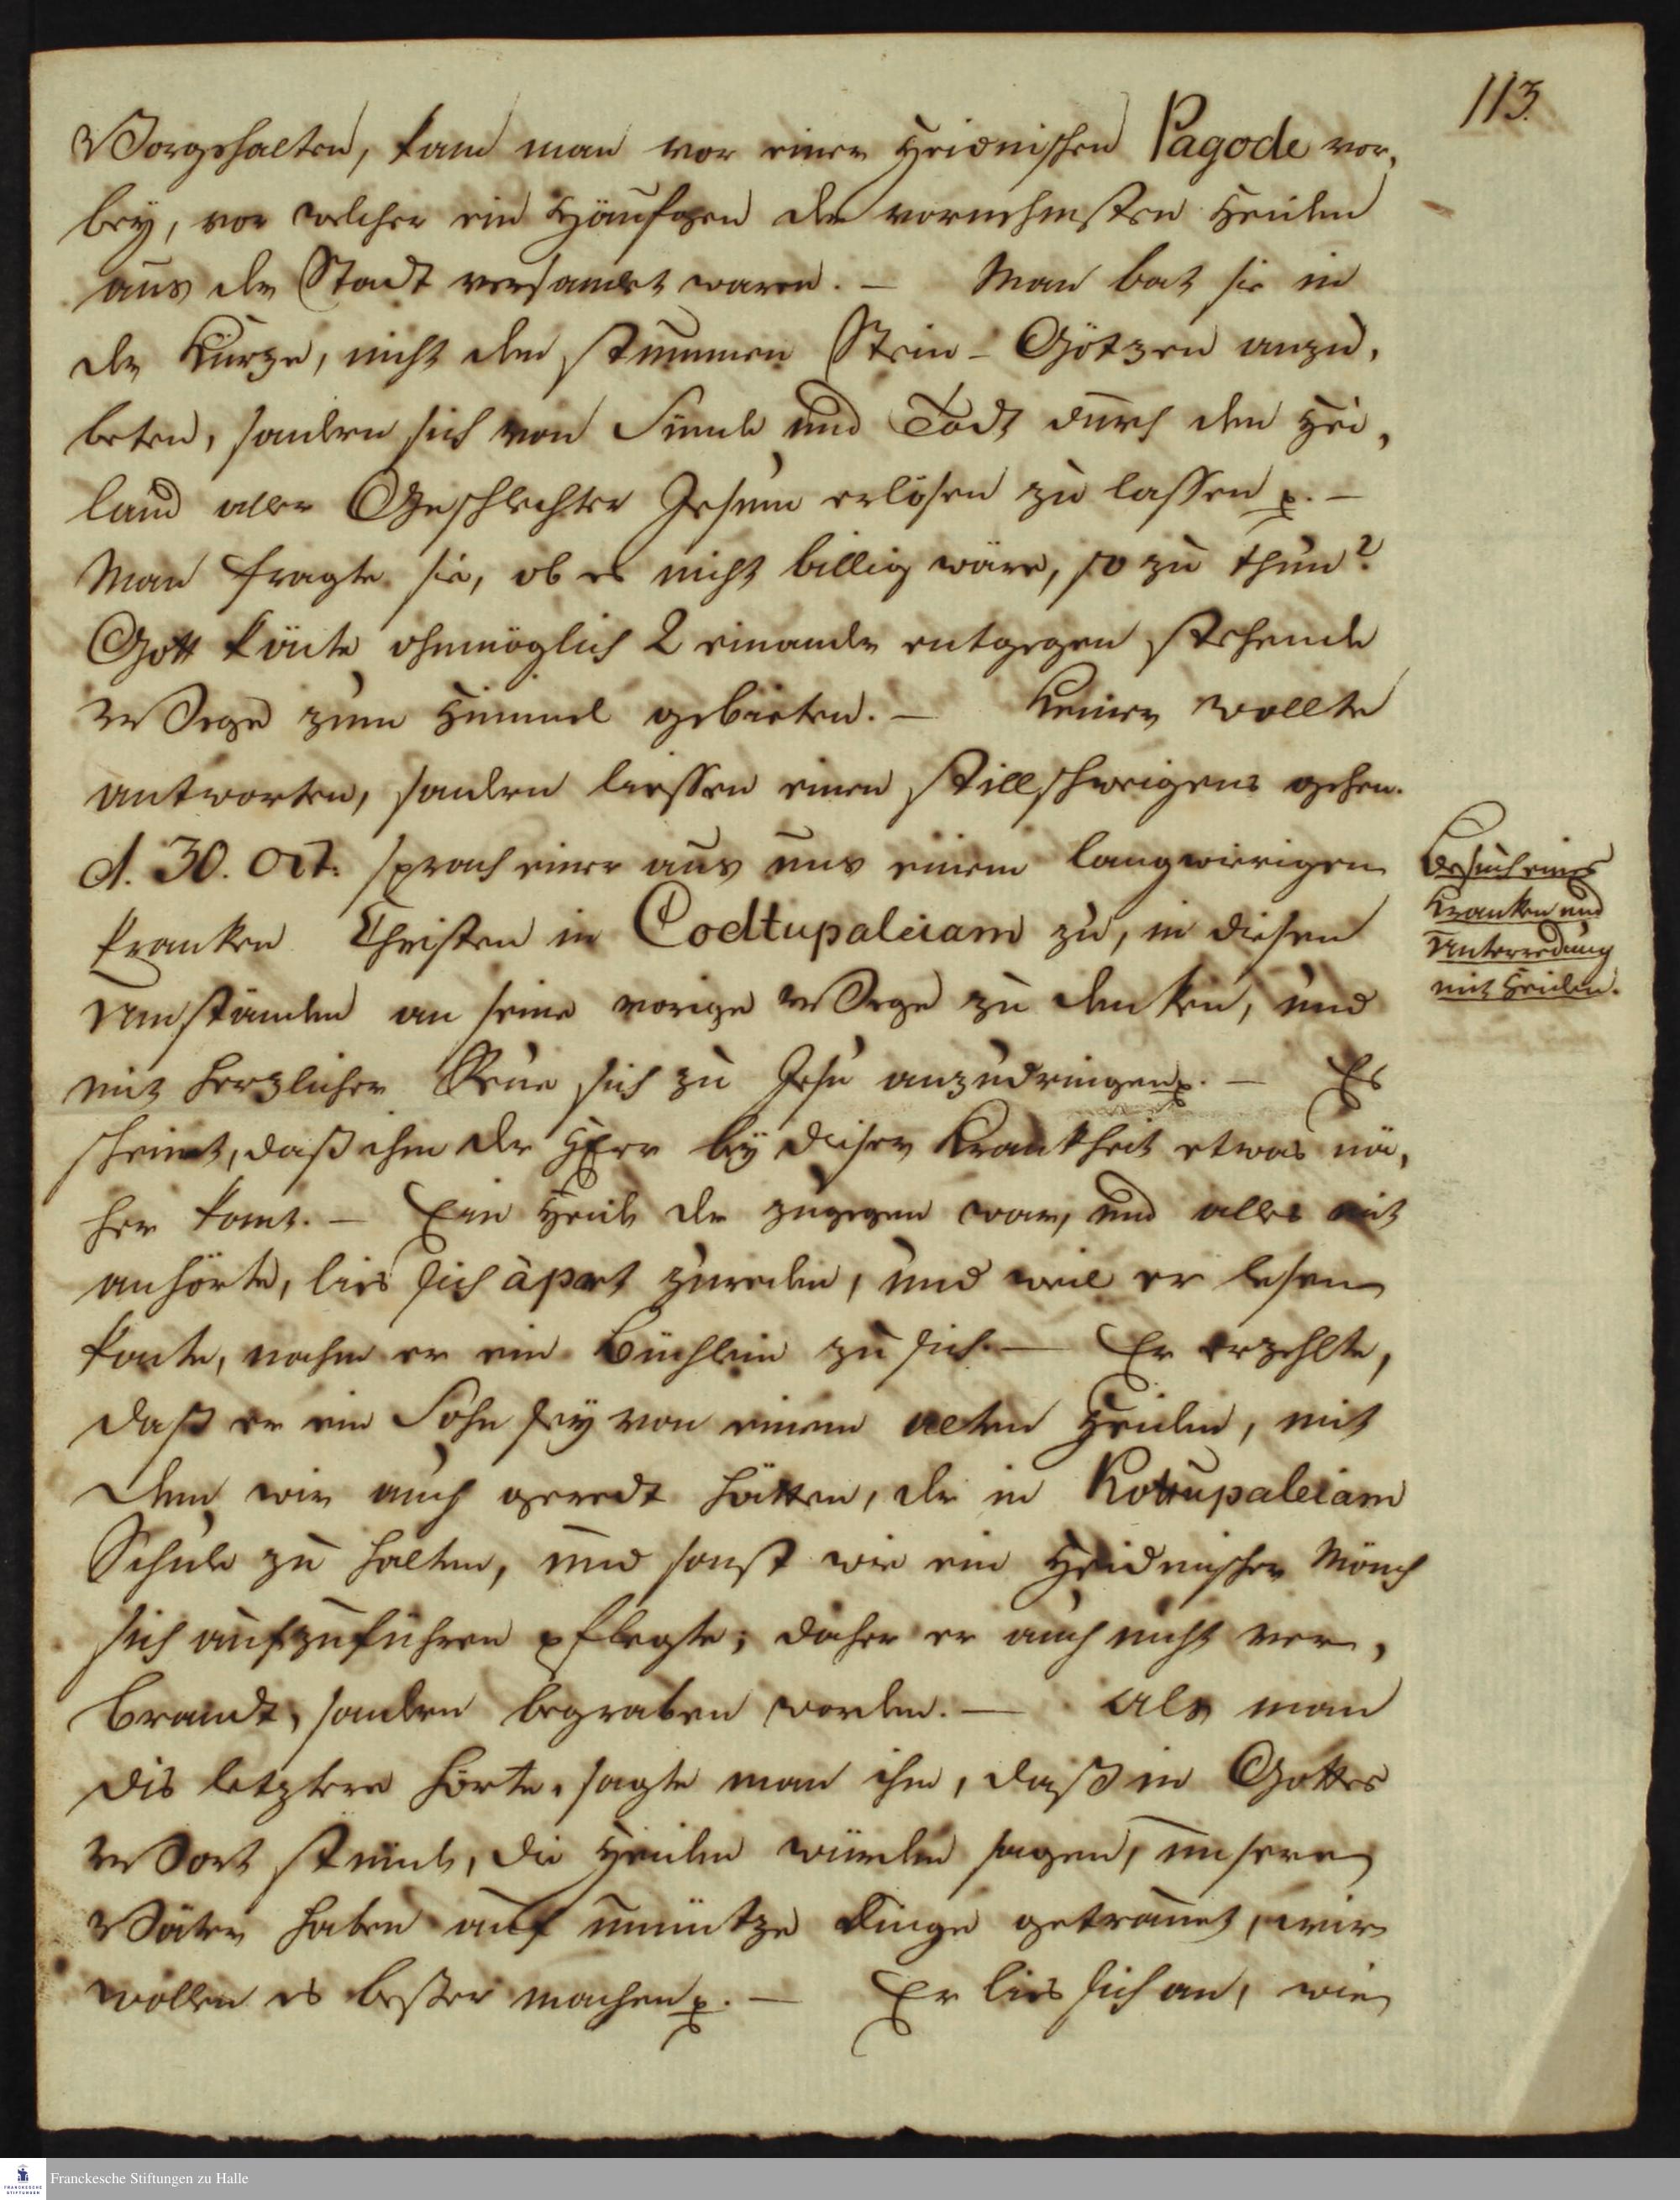 113.
Vorgehalten, kam man vor einer Heidnischen Pagode vor,
bey, vor welcher ein Häufgen der vornehmsten Heiden
aus der Stadt versamlet waren. – Man bat sie in
der Kürze, nicht den stummen Stein-Götzen anzu,
beten, sondern sich von Sünde und Todt durch den Hei,
land aller Geschlechter Jesum erlösen zu lassen p. –
Man fragte sie, ob es nicht billig wäre, so zu thun?
Gott könte ohnmöglich 2 einander entgegen stehende
Wege zum Himmel gebieten. – Keiner wollte
antworten, sondern liessen einen stillschweigens gehen.
d. 30. Oct. sprach einer aus uns einem langwierigen
kranken Christen in Codtupaleiam zu, in diesen
Umständen an seine vorige Wege zu denken, und
mit herzlicher Reue sich zu Jesu anzudringen p. – Es
scheint, daß ihm der HErr bey dieser Krankheit etwas nä,
her komt. – Ein Heide der zugegen war, und alles mit
anhörte, lies sich àpart zureden, und weil er lesen
konte, nahm er ein Büchlein zu sich. – Er erzehlte,
daß er ein Sohn sey von einem alten Heiden, mit
dem wir auch geredt hätten, der in Kottupaleiam
Schule zu halten, und sonst wie ein Heidnischer Mönch
sich aufzuführen pflegte; daher er auch nicht ver,
brandt, sondern begraben worden. – Als man
dis letztere hörte, sagte man ihm, daß in Gottes
Wort stünde, die Heiden würden sagen, unsere
Väter haben auf unnütze Dinge getrauet, wir
wollen es beßer machen p. – Er lies sich an, wie
Besuch eines
Kranken und
Unterredung
mit Heiden.
Franckesche Stiftungen zu Halle
FRANCKESCHE
STIFTUNGEN